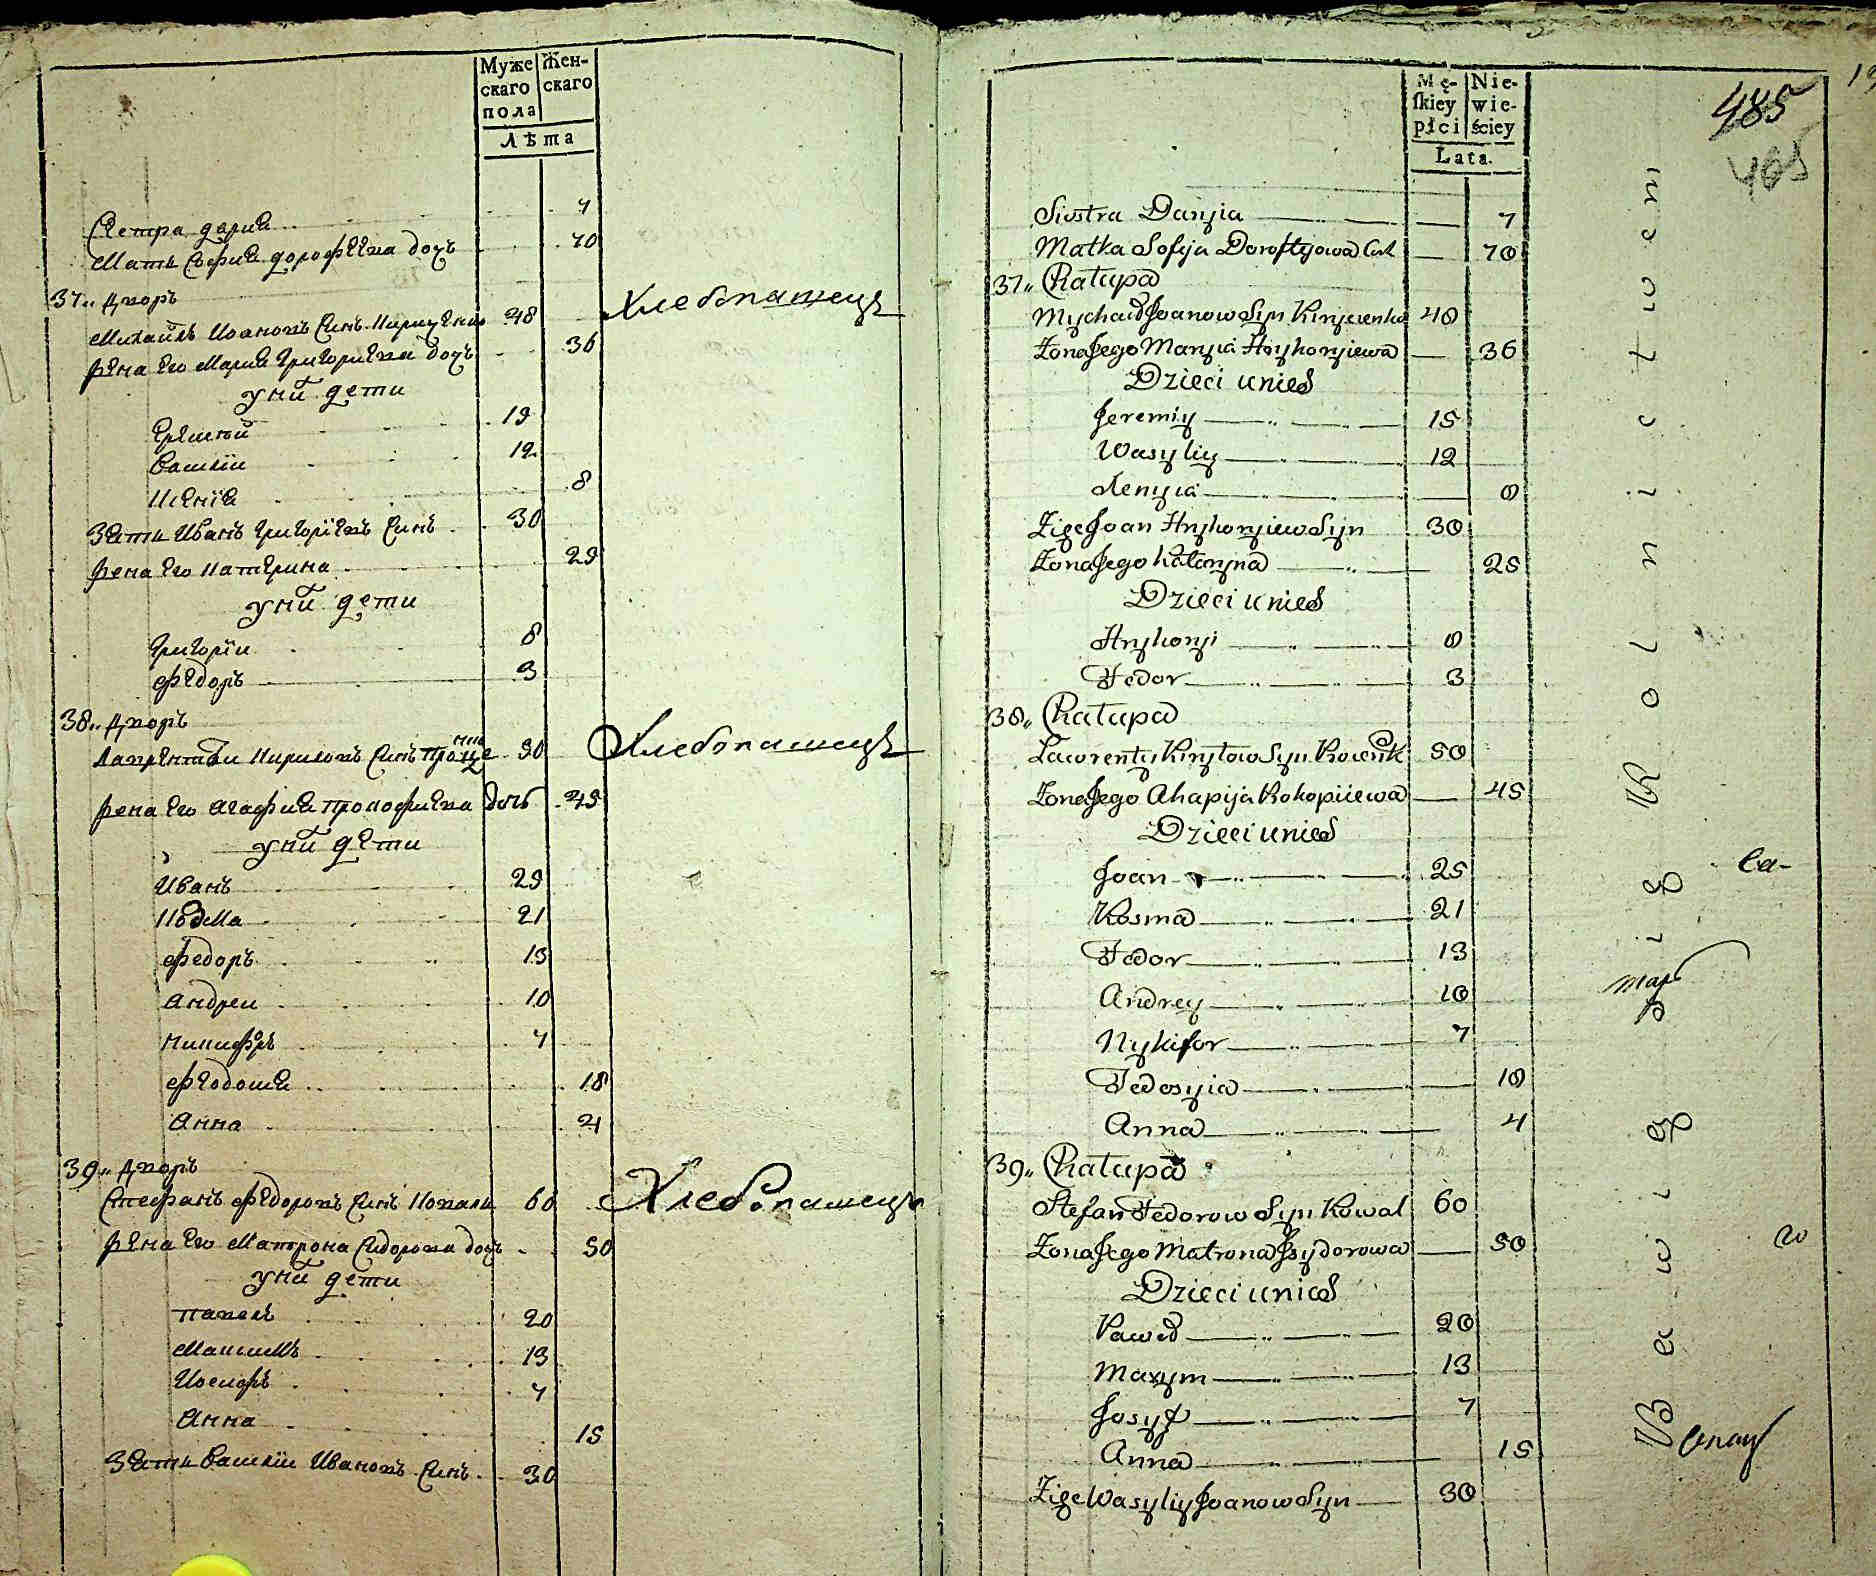 Муже
скаго
пола
Жен-
скаго
Лѣта
Сестра дария 7
Мать Софиа дорофѣева дочъ 70
37,, Дворъ
Михайлъ Ивановъ Синъ Кириченко 48 Хлебопашецъ
жена Его Мариа Григориева дочъ 36
унй дети
Еремѣй 15
Василïи 12
Ксенïа 8
Зять Иванъ Григорïевъ Синъ 30
жена Его Катерина 25
унй дети
Григорïи 8
Федоръ 3
38,, Дворъ
Лаврентïи Кириловъ Синъ 50 Хлебопашецъ
жена Его Агафиа Прокофиева дочъ 45
унй дети
Иванъ 25
Козма 21
Федоръ 13
Андреи 10
Никифоръ 7
Феодосиа 18
Анна 4
39,, Дворъ
Стефанъ Федоровъ Синъ Коваль 60 Хлебопашецъ
жена Его Матрона Сидорова дочъ 50
унй дети
Павелъ 20
Максимъ 13
Иосифъ 7
Анна 15
Зять Василïи Ивановъ Синъ 30
Mę-
skiey
płci
Nie-
wie-
ściey
Lata.
485
485
Siostra Daryia 7
Matka Sofija Doroftyiowa Cork 70
37,, Chałupa
Mychaił Joanow Syn Kiryczenko 48
Zona Jego Maryia Hryhoryiewa 36
Dzieci u nich
Jeremiy 15
Wasyliy 12
Xenyia 8
Zięc Joan Hryhoryiew Syn 30
Zona Jego Katoryna 25
Dzieci u nich
Hryhoryi 8
Fedor 3
38,, Chałupa
Lawrentiy Kryłow Syn 50
Zona Jego Ahapija Kokopiiewa 45
Dzieci u nich
Joan 25
Kosma 21
Fedor 13
Andrey 10
Nykifor 7
Fedosyia 18
Anna 4
39,, Chałupa
Stefan Fedorow Syn Kowal 60
Zona Jego Matrona Jsydorowa 50
Dzieci u nich
Paweł 20
Maxym 13
Josyf 7
Anna 15
Zięc Wasyliy Joanow Syn 30
Bawią się Rolnictwem